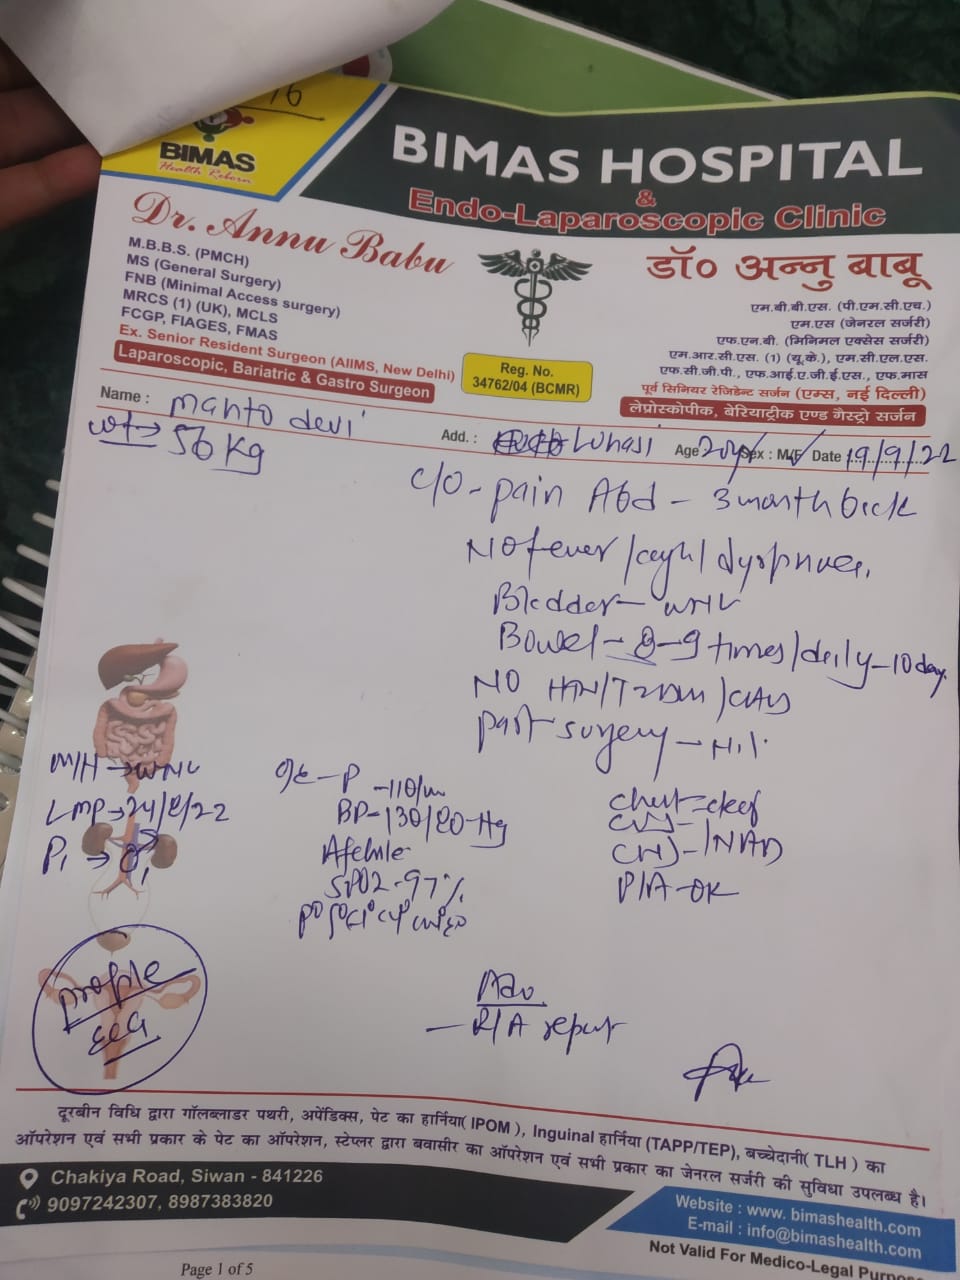 16
BIMAS
Health Reborn
BIMAS HOSPITAL
&
Endo-Laparoscopic Clinic
Dr. Annu Babu
M.B.B.S. (PMCH)
MS (General Surgery)
FNB (Minimal Access surgery)
MRCS (1) (UK), MCLS
FCGP, FIAGES, FMAS
Ex. Senior Resident Surgeon (AIIMS, New Delhi)
Laparoscopic, Bariatric & Gastro Surgeon
Reg. No.
34762/04 (BCMR)
डॉ० अन्नु बाबू
एम.बी.बी.एस. (पी.एम.सी.एच.)
एम.एस (जेनरल सर्जरी)
एफ.एन.बी. (मिनिमल एक्सेस सर्जरी)
एम.आर.सी.एस. (1) (यू.के.), एम.सी.एल.एस.
एफ.सी.जी.पी., एफ.आई.ए.जी.ई.एस., एफ.मास
पूर्व सिनियर रेजिडेन्ट सर्जन (एम्स, नई दिल्ली)
लेप्रोस्कोपीक, बेरियाट्रीक एण्ड गैस्ट्रो सर्जन
Name : Manto devi Add. : Luhasi Age 20y Sex : M/F Date 19/9/22
wt → 56 kg
c/o - pain Abd - 3 month back
No fever / cough / dyspnoea,
Bladder -
Bowel - 8-9 times / daily - 10 day.
NO HTN / T2DM / CAD
past surgery - Nil.
M/H →
LMP → 24/8/22
P1 →
O/E - P - 110/m
BP - 130/80 - Hg
Afebrile
SPO2 - 97%
chest = clear
CVS -
CNS - / NAD
P/A - OK
profile
ECG
Adv.
- R/A report
दूरबीन विधि द्वारा गॉलब्लाडर पथरी, अपेंडिक्स, पेट का हार्निया( IPOM ), Inguinal हार्निया (TAPP/TEP), बच्चेदानी( TLH ) का
ऑपरेशन एवं सभी प्रकार के पेट का ऑपरेशन, स्टेप्लर द्वारा बवासीर का ऑपरेशन एवं सभी प्रकार का जेनरल सर्जरी की सुविधा उपलब्ध है।
Chakiya Road, Siwan - 841226
9097242307, 8987383820
Website : www. bimashealth.com
E-mail : info@bimashealth.com
Not Valid For Medico-Legal Purpose
Page 1 of 5